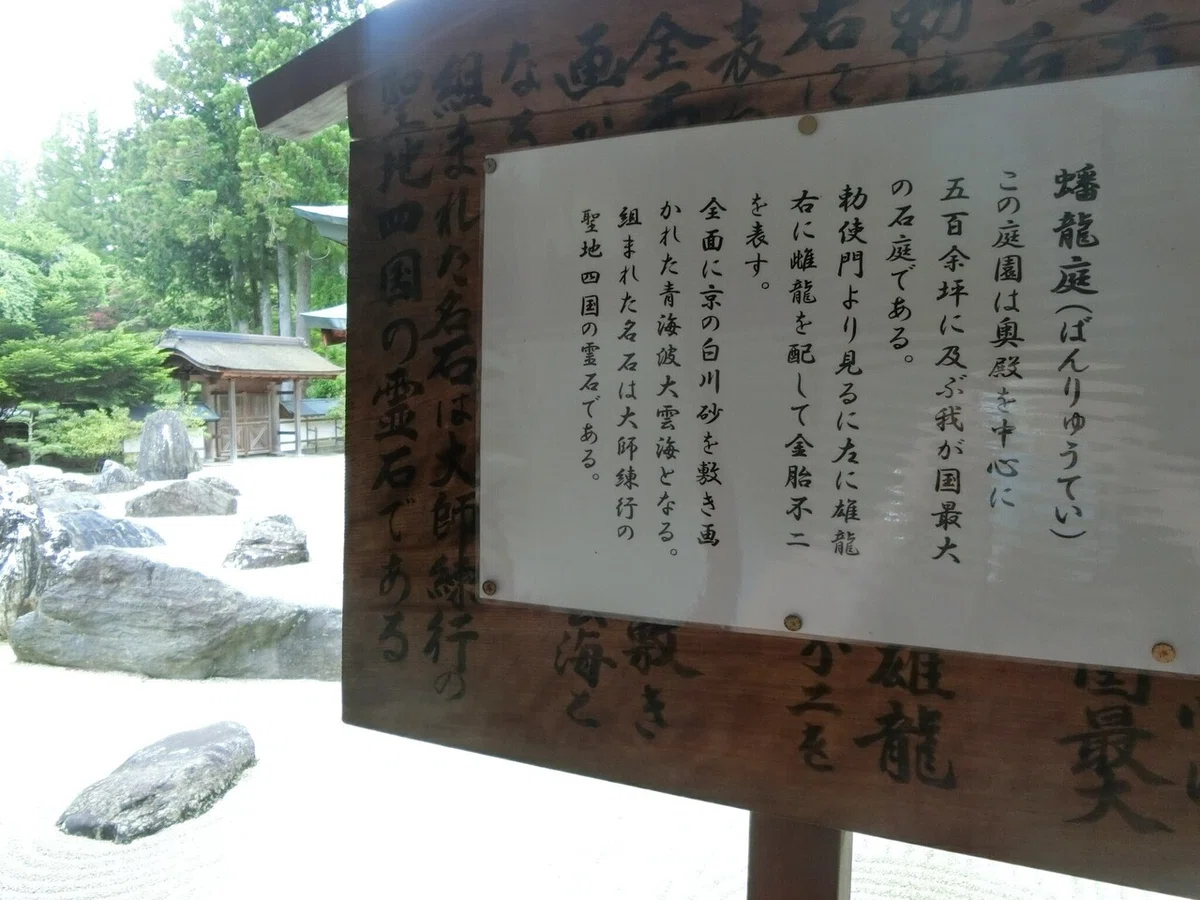 蟠龍庭(ばんりゅうてい)
この庭園は奥殿を中心に
五百余坪に及ぶ我が国最大
の石庭である。
勅使門より見るに左に雄龍
右に雌龍を配して金胎不二
を表す。
全面に京の白川砂を敷き画
かれた青海波大雲海となる。
組まれた名石は大師練行の
聖地四国の霊石である。
国最大
勅
雄龍
右に
不二を
表
全面
敷き
画が
海と
なる
組まれた名石は大師練行の
聖地四国の霊石である